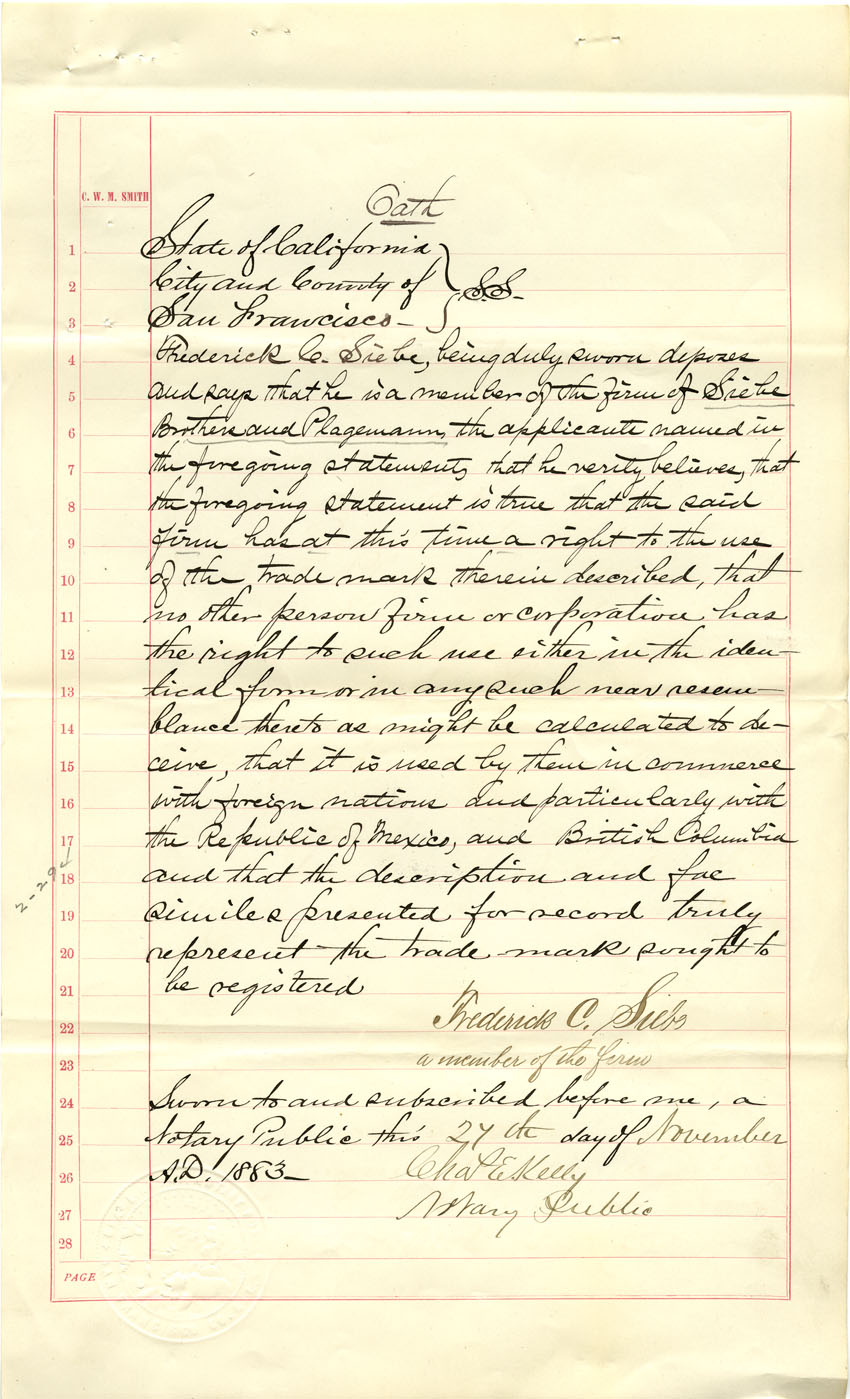 Oath
C. W. M. SMITH
1 State of California
2 City and County of } S.S.
3 San Francisco—
4 Frederick C. Siebe, being duly sworn deposes
5 and says that he is a member of the firm of Siebe
6 Brothers and Plagemann, the applicants named in
7 the foregoing statement, that he verily believes, that
8 the foregoing statement is true that the said
9 firm has at this time a right to the use
10 of the trade mark therein described, that
11 no other person firm or corporation has
12 the right to such use either in the iden-
13 tical form or in any such near resem-
14 blance thereto as might be calculated to de-
15 ceive, that it is used by them in commerce
16 with foreign nations and particularly with
17 the Republic of Mexico, and British Columbia
18 and that the description and fac
19 similes presented for record truly
20 represent the trade mark sought to
21 be registered
22 Frederick C. Siebe
23 a member of the firm
24 Sworn to and subscribed before me, a
25 Notary Public this 27th day of November
26 A.D. 1883— Chas E Kelly
27 Notary Public
28
PAGE